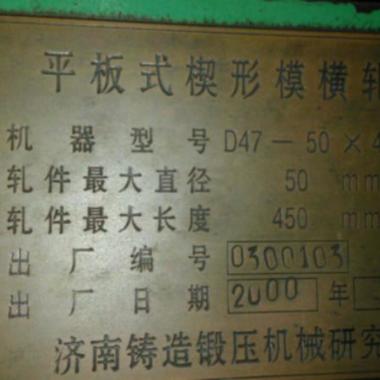 平板式楔形模横轧
机器型号 D47-50×4
轧件最大直径 50 mm
轧件最大长度 450 mm
出厂编号 0300103
出厂日期 2000年
济南铸造锻压机械研究